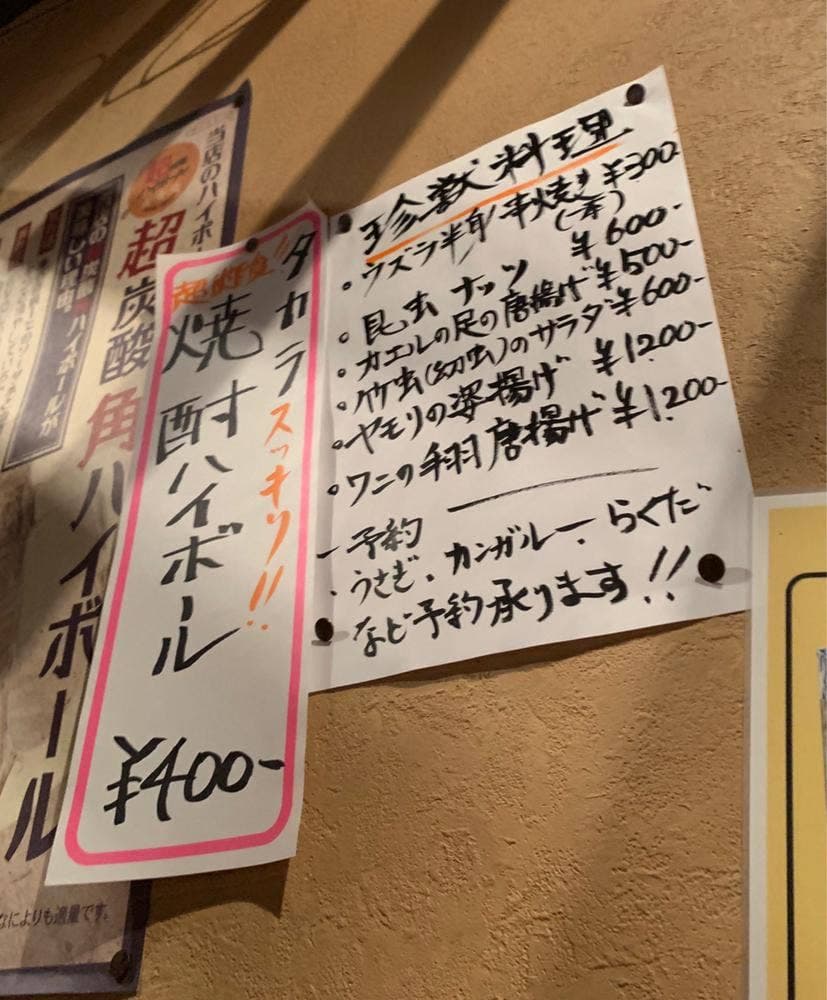 珍獣料理
・ウズラ半身串焼き ¥300
(一本)
・昆虫ナッツ ¥600-
・カエルの足の唐揚げ ¥500-
・竹虫(幼虫)のサラダ ¥600-
・ヤモリの姿揚げ ¥1200-
・ワニの手羽唐揚げ ¥1,200-
予約
・うさぎ、カンガルー、らくだ
など予約承ります!!
タカラ
スッキリ!!
焼酎ハイボール
¥400-
当店のハイボ
超炭酸角ハイボール
ハイボールが
なによりも適量です。